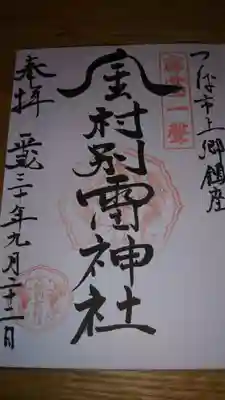 つくば市上郷鎮座
金村別雷神社
奉拝 平成三十年九月二十二日